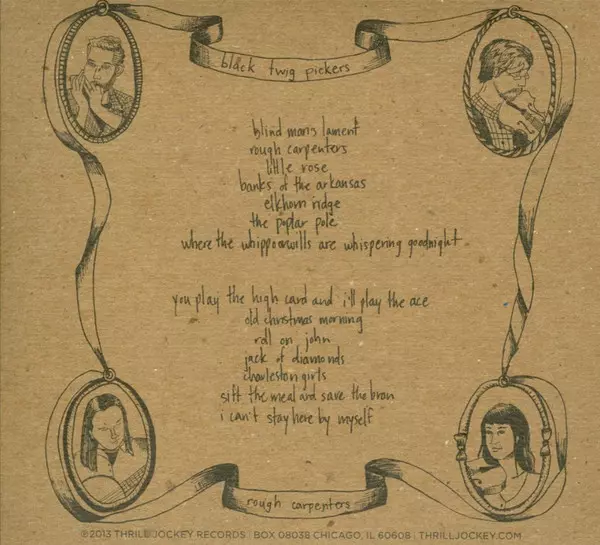 black twig pickers
blind man's lament
rough carpenters
little rose
banks of the arkansas
elkhorn ridge
the poplar pole
where the whippoorwills are whispering goodnight
you play the high card and i'll play the ace
old christmas morning
roll on john
jack of diamonds
charleston girls
sift the meal and save the bran
i can't stay here by myself
rough carpenters
©2013 THRILL JOCKEY RECORDS | BOX 08038 CHICAGO, IL 60608 | THRILLJOCKEY.COM